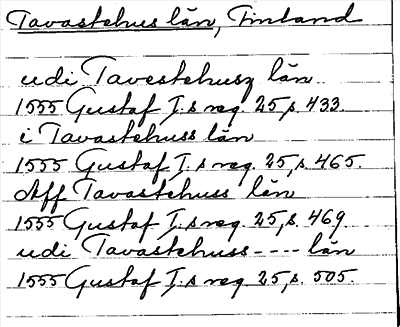 Tavastehus län, Finland
udi Tavestehusz län.
1555 Gustaf I.s reg. 25, s. 433.
i Tavastehuss län
1555 Gustaf I.s reg. 25, s. 465.
Aff Tavastehuss län
1555 Gustaf I.s reg. 25, s. 469
udi Tavastehuss - - - - län
1555 Gustaf I.s reg. 25, s. 505.